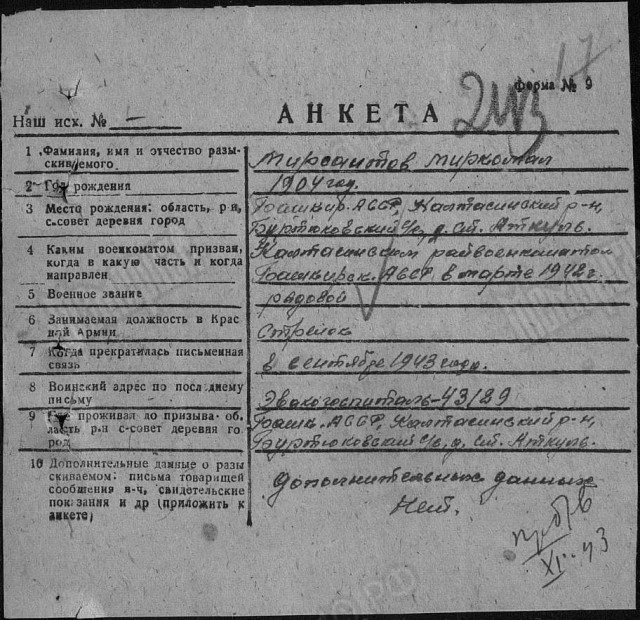 17
Форма № 9
Наш исх. №
АНКЕТА
1 Фамилия, имя и отчество разы-
скиваемого
Мирсаитов Миркамал
2 Год рождения
1904 год.
3 Место рождения: область, р-н,
с.совет деревня город
Башкир. АССР, Калтасинский р-н,
Буртюковский с/с, д. Ст. Аткуль.
4 Каким военкоматом призван,
когда в какую часть и когда
направлен
Калтасинским райвоенкоматом
Башкирск. АССР в марте 1942 г.
5 Военное звание
рядовой
6 Занимаемая должность в Крас
ной Армии
Стрелок
7 Когда прекратилась письменная
связь
в сентябре 1943 года.
8 Воинский адрес по последнему
письму
Эвакогоспиталь-43/29
9 Где проживал до призыва об-
ласть р-н с-совет деревня го
род
Башк. АССР, Калтасинский р-н,
Буртюковский с/с, д. Ст. Аткуль.
10 Дополнительные данные о разы
скиваемом: письма товарищей
сообщения в-ч, свидетельские
показания и др (приложить к
анкете)
Дополнительных данных
Нет.
XI. 43